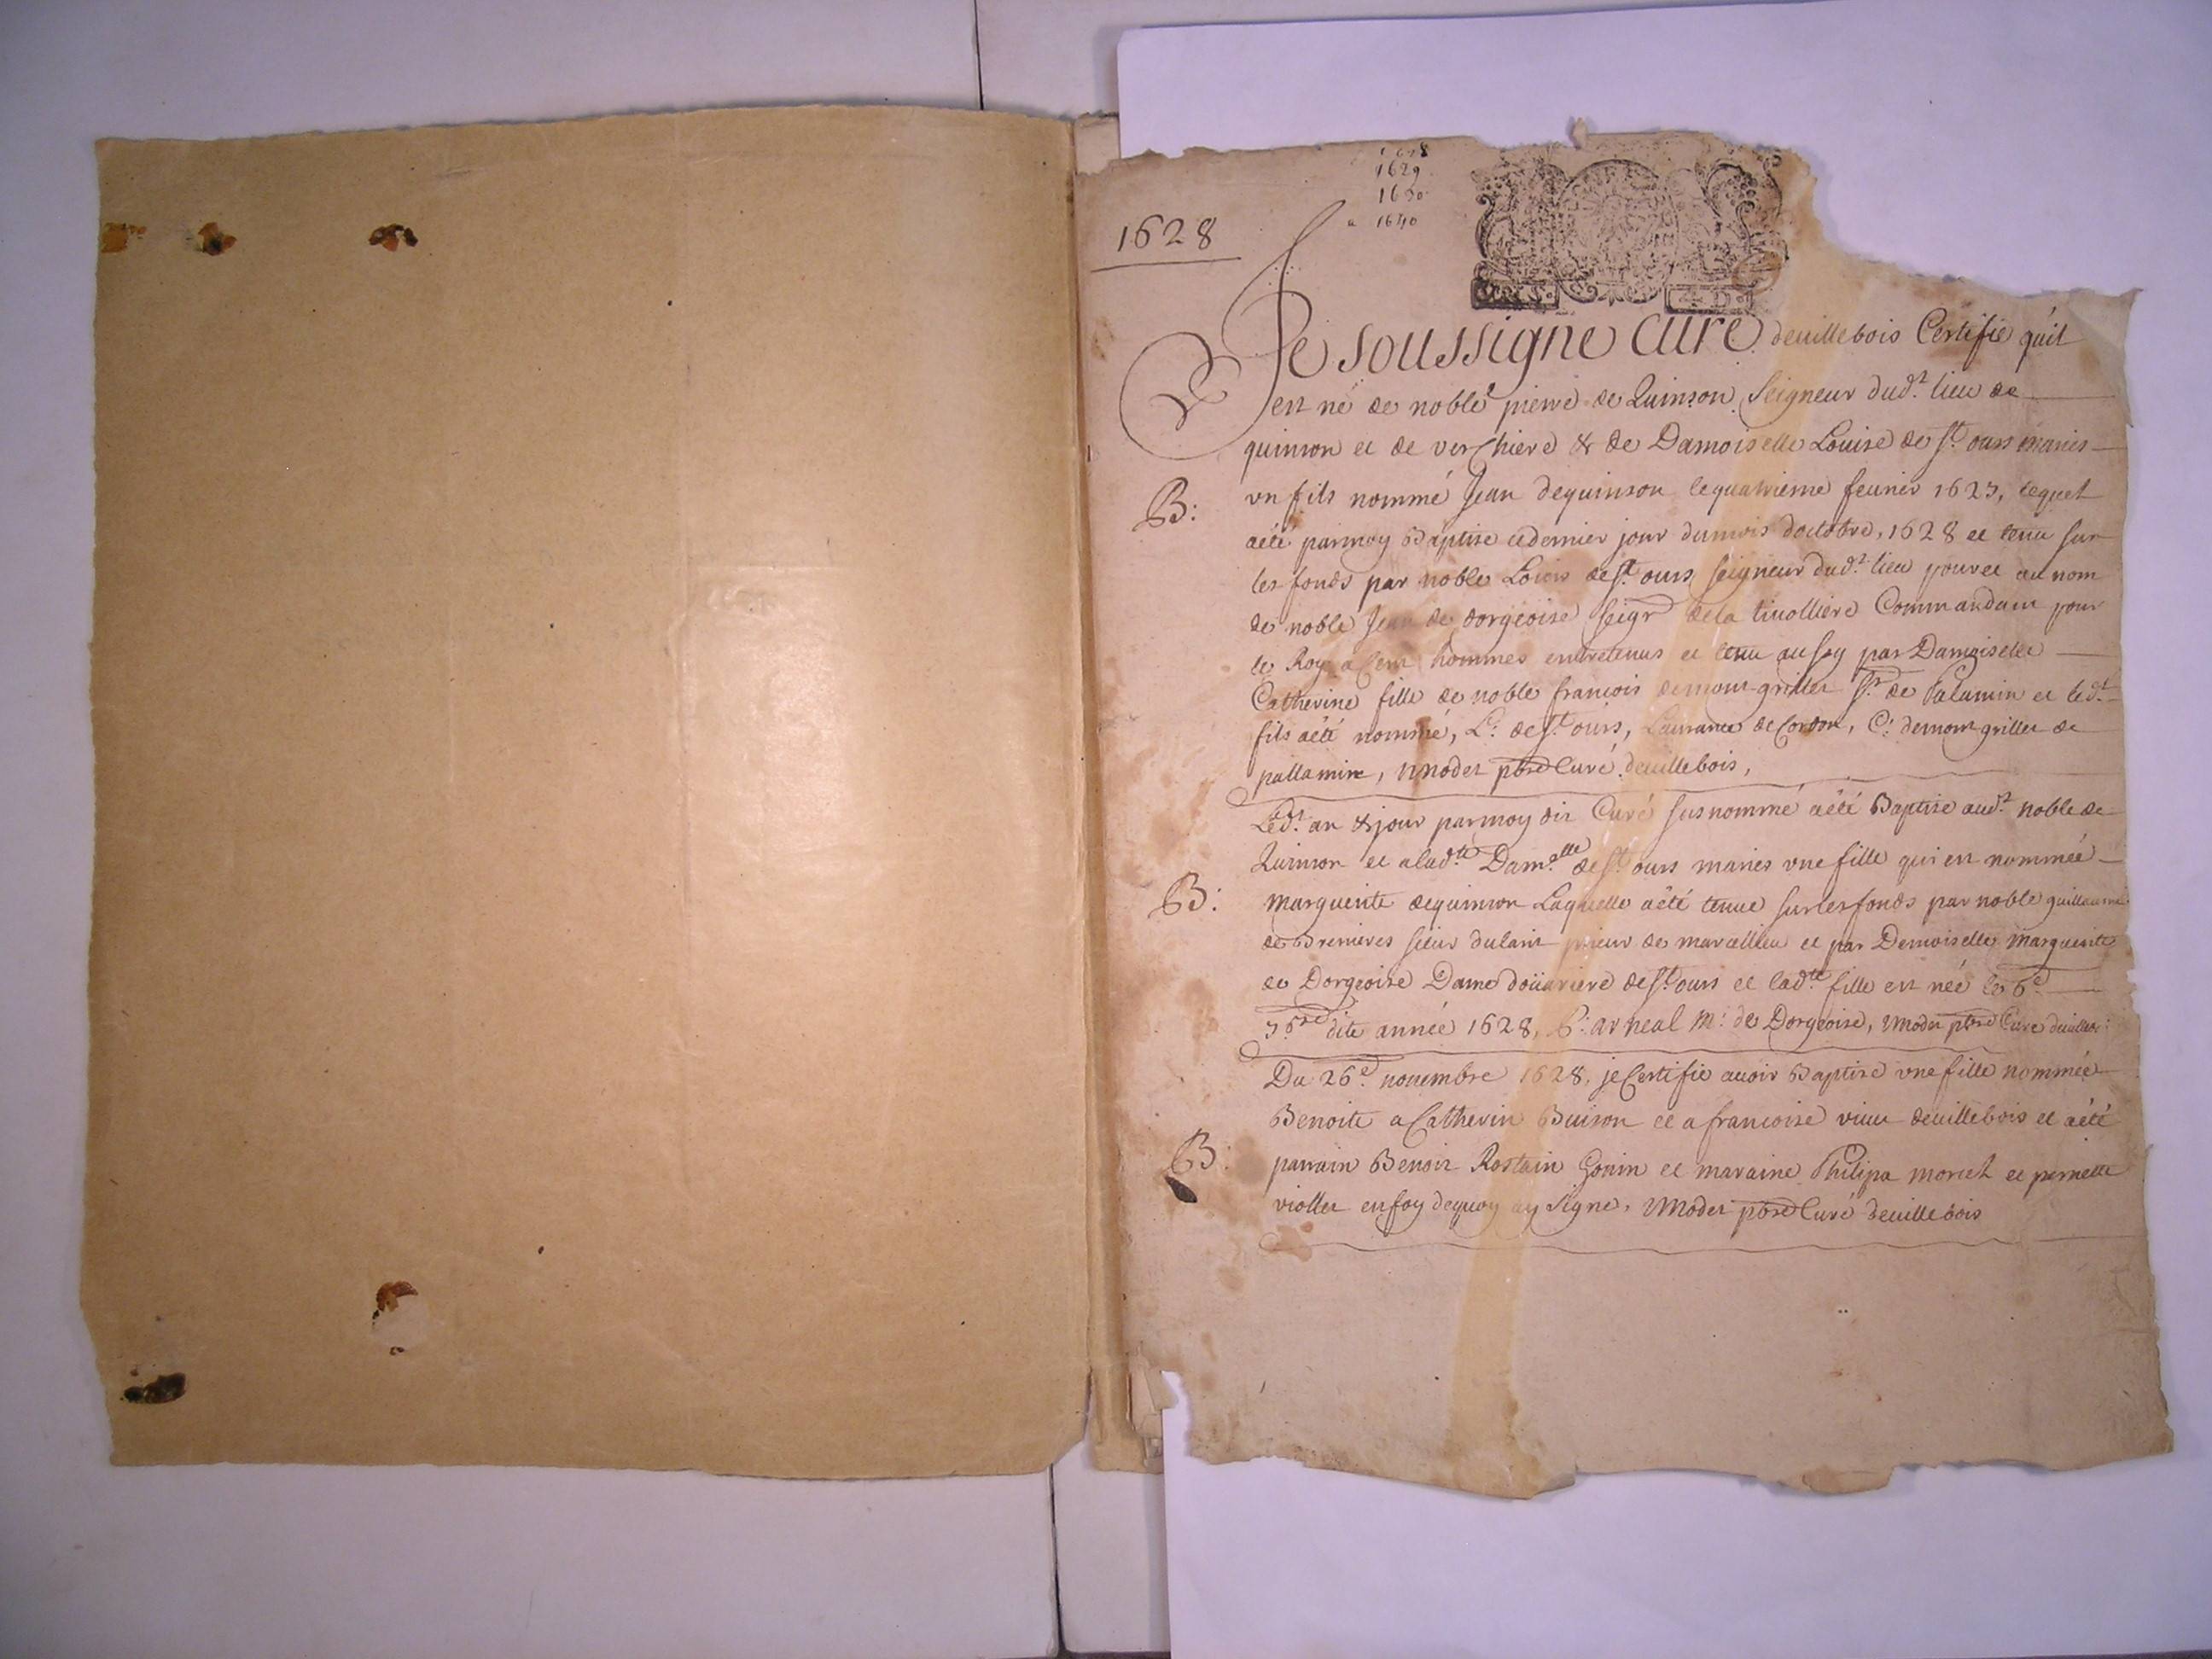 1628
1629
1630
a 1640
1628
Je soussigne Curé deuillebois Certifie quil
est né de noble pierre de Quinson Seigneur dud.t lieu de
quinson et de verchiere & de Damoiselle Louise de S.t ours maries
B: vn fils nommé Jean dequinson lequatrieme feurier 1627, lequel
aété parmoy Baptise ledernier jour dumois doctobre, 1628 et tenu sur
les fonds par noble Loüis de S.t ours seigneur dud.t lieu pour et au nom
de noble Jean de dorgeoise seigr dela tiuolliere Commandant pour
le Roy a Cent hommes entretenus et tenu au sey par Damoiselle
Catherine fille de noble francois demont griller S.r de Palamin et led.t
fils aété nommé, L: de S.t ours, Laurance de Cordon, C: demont griller de
pallamin, Modet pbre Curé deuillebois,
Led.t an & jour parmoy dit Curé susnommé aété Baptise aud.t noble de
Quinson et alad.te Dam.elle de S.t ours maries vne fille qui est nommée
B: Marguerite dequinson Laquelle aété tenue surlesfonds par noble guillaume
de Brenieres sieur dulait prieur de marcellieu et par Demoiselle Marguerite
de Dorgeoise Dame doüariere de S.t ours et lad.te fille est née le 6.e
7bre dite année 1628, arneal M: de Dorgeoise, Modet pbre Curé
Du 26.e nouembre 1628, jeCertifie auoir Baptise vne fille nommée
Benoite a Catherin Buison et a francoise deuillebois et aété
B: parrain Benoit Rostain Gonin et maraine Philipa moriel et pernette
viollet enfoy dequoy ay signe, Modet pbre Curé deuillebois